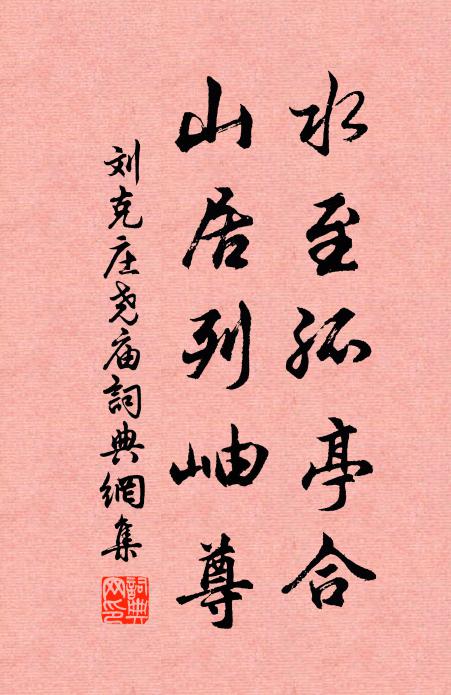 水至孤亭合
山居列岫尊
刘克庄尧庙詞典網集
詞典
网印